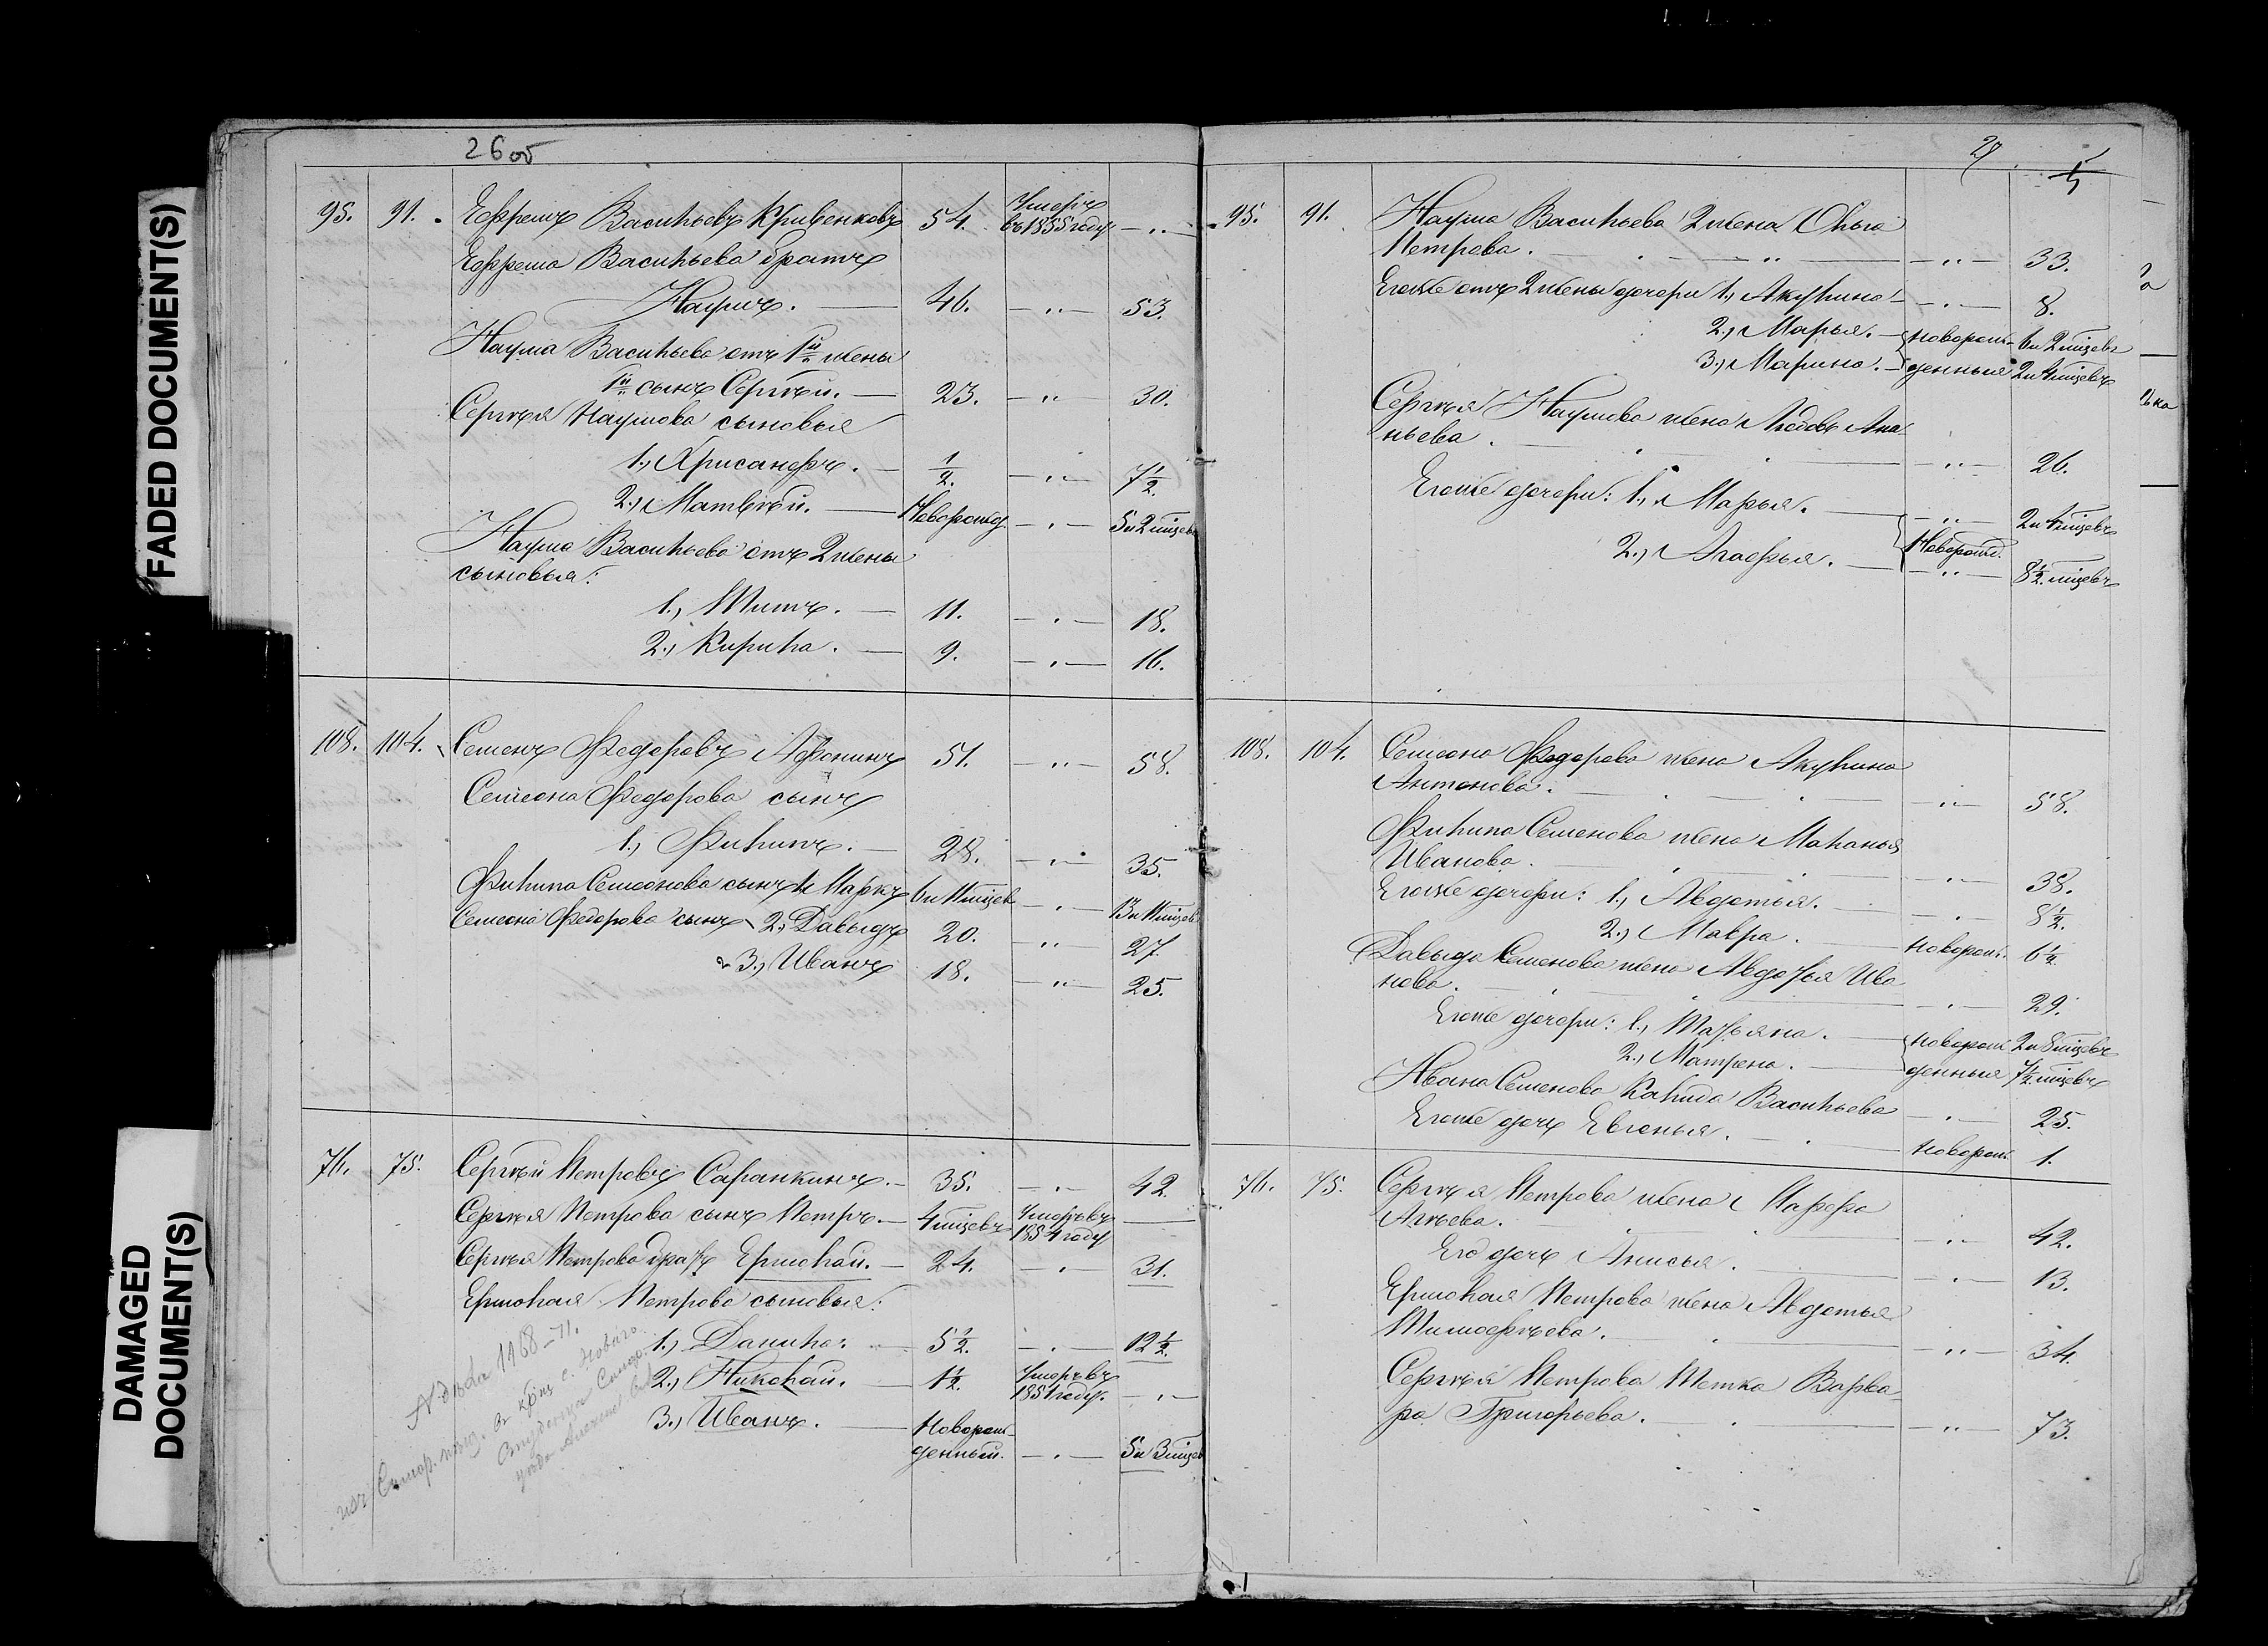 FADED DOCUMENT(S)
DAMAGED
DOCUMENT(S)
26 об
95. 91. Ефремъ Васильевъ Кривенковъ 54. Умеръ въ 1855 году — „ —
Ефрема Васильева братъ
Наумъ. — 46. — „ — 53.
Наума Васильева отъ 1й жены
1й сынъ Сергѣй. — 23. — „ — 30.
Сергѣя Наумова сыновья
1., Хрисанфъ. — 1/2. — „ — 7 1/2.
2., Матвѣй. — Новорожд. — „ — 5 и 2 мцевъ
Наума Васильева отъ 2 жены
сыновья:
1., Титъ. — 11. — „ — 18.
2., Кирила. — 9. — „ — 16.
108. 104. Семенъ Федоровъ Афонинъ 51. — „ — 58.
Семеона Федорова сынъ
1., Филипъ. — 28. — „ — 35.
Филипа Семеонова сынъ Маркъ 6 и 11 мцев. — „ — 13 и 11 мцевъ
Семеона Федорова сынъ 2., Давыдъ 20. — „ — 27.
3., Иванъ 18. — „ — 25.
76. 75. Сергѣй Петровъ Саранкинъ. — 35. — „ — 42.
Сергѣя Петрова сынъ Петръ. — 4 мцевъ Умеръ въ 1854 году —
Сергѣя Петрова братъ Ермолай. — 24. — „ — 31.
Ермолая Петрова сыновья:
1., Данила. 5 1/2. — „ — 12 1/2.
2., Николай. — 1 1/2. Умеръ въ 1851 году. — „ —
3., Иванъ. — Новорож-
денный. — „ — 5 и 3 мцев
27.
95. 91. Наума Васильева 2 жена Ольга
Петрова. — „ — 33.
Егоже отъ 2 жены дочери 1., Акулина — „ — 8.
2., Марья. — новорож- 6 и 2 мцевъ
3., Марина. — денныя 2 и 4 мцевъ
Сергѣя Наумова жена Агаѳья Ана-
ньева. — „ — 26.
Егоже дочери: 1., Марья. — „ — 2 и 4 мцевъ
2., Агафья. — Новорожд. — „ — 8 1/2 мцевъ
108. 104. Семеона Федорова жена Акулина
Антонова. — „ — 58.
Филипа Семенова жена Маланья
Иванова. — „ — 38.
Егоже дочери: 1., Авдотья. — „ — 8 1/2.
2., Мавра. — новорож. 6 1/2.
Давыда Семенова жена Авдотья Ива
нова. — „ — 29.
Егоже дочери: 1., Татьяна. — новорож 2 и 8 мцевъ
2., Матрена. — денныя 7 1/2 мцевъ
Ивана Семенова Калида Васильева — „ — 25.
Егоже дочь Евгенья. — новорож. 1.
76. 75. Сергѣя Петрова жена Марфа
Агѣева. — „ — 42.
Его дочь Анисья. — „ — 13.
Ермолая Петрова жена Авдотья
Тимофѣева. — „ — 34.
Сергѣя Петрова Тетка Варва-
ра Григорьева. — „ — 73.